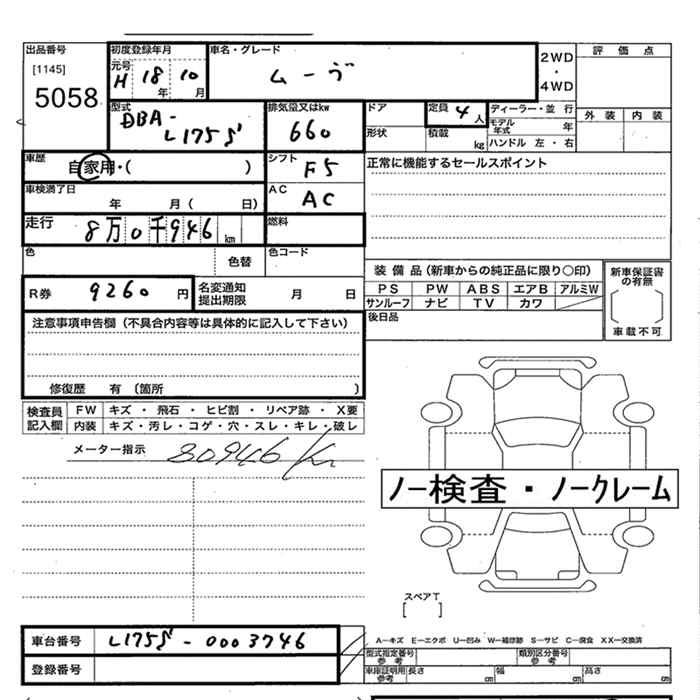 出品番号
[1145]
5058
初度登録年月
元号
H 18 年 10 月
車名・グレード
ムーヴ
2WD
・
4WD
評価点
外装 内装
型式
DBA-
L175S
排気量又はkw
660
ドア
定員 4 人
形状
積載 kg
ディーラー・並行
モデル年式 年
ハンドル 左・右
車歴
自家用・( )
シフト
F5
正常に機能するセールスポイント
車検満了日
年 月( 日)
AC
AC
走行
8万0千946km
燃料
色
色替
色コード
R券 9260 円
名変通知
提出期限 月 日
装備品(新車からの純正品に限り○印)
PS PW ABS エアB アルミW
サンルーフ ナビ TV カワ
新車保証書
の有無
車載不可
後日品
注意事項申告欄(不具合内容等は具体的に記入して下さい)
修復歴 有 〔箇所 〕
検査員
記入欄
FW キズ・飛石・ヒビ割・リペア跡・X要
内装 キズ・汚レ・コゲ・穴・スレ・キレ・破レ
メーター指示 80946 km
ノー検査・ノークレーム
スペアT
[ ]
車台番号 L175S-0003746
登録番号
A-キズ E-エクボ U-凹み W-補修跡 S-サビ C-腐食 XX-交換済
型式指定番号
参考
類別区分番号
参考
車庫証明用
参考
長さ cm 幅 cm 高さ cm